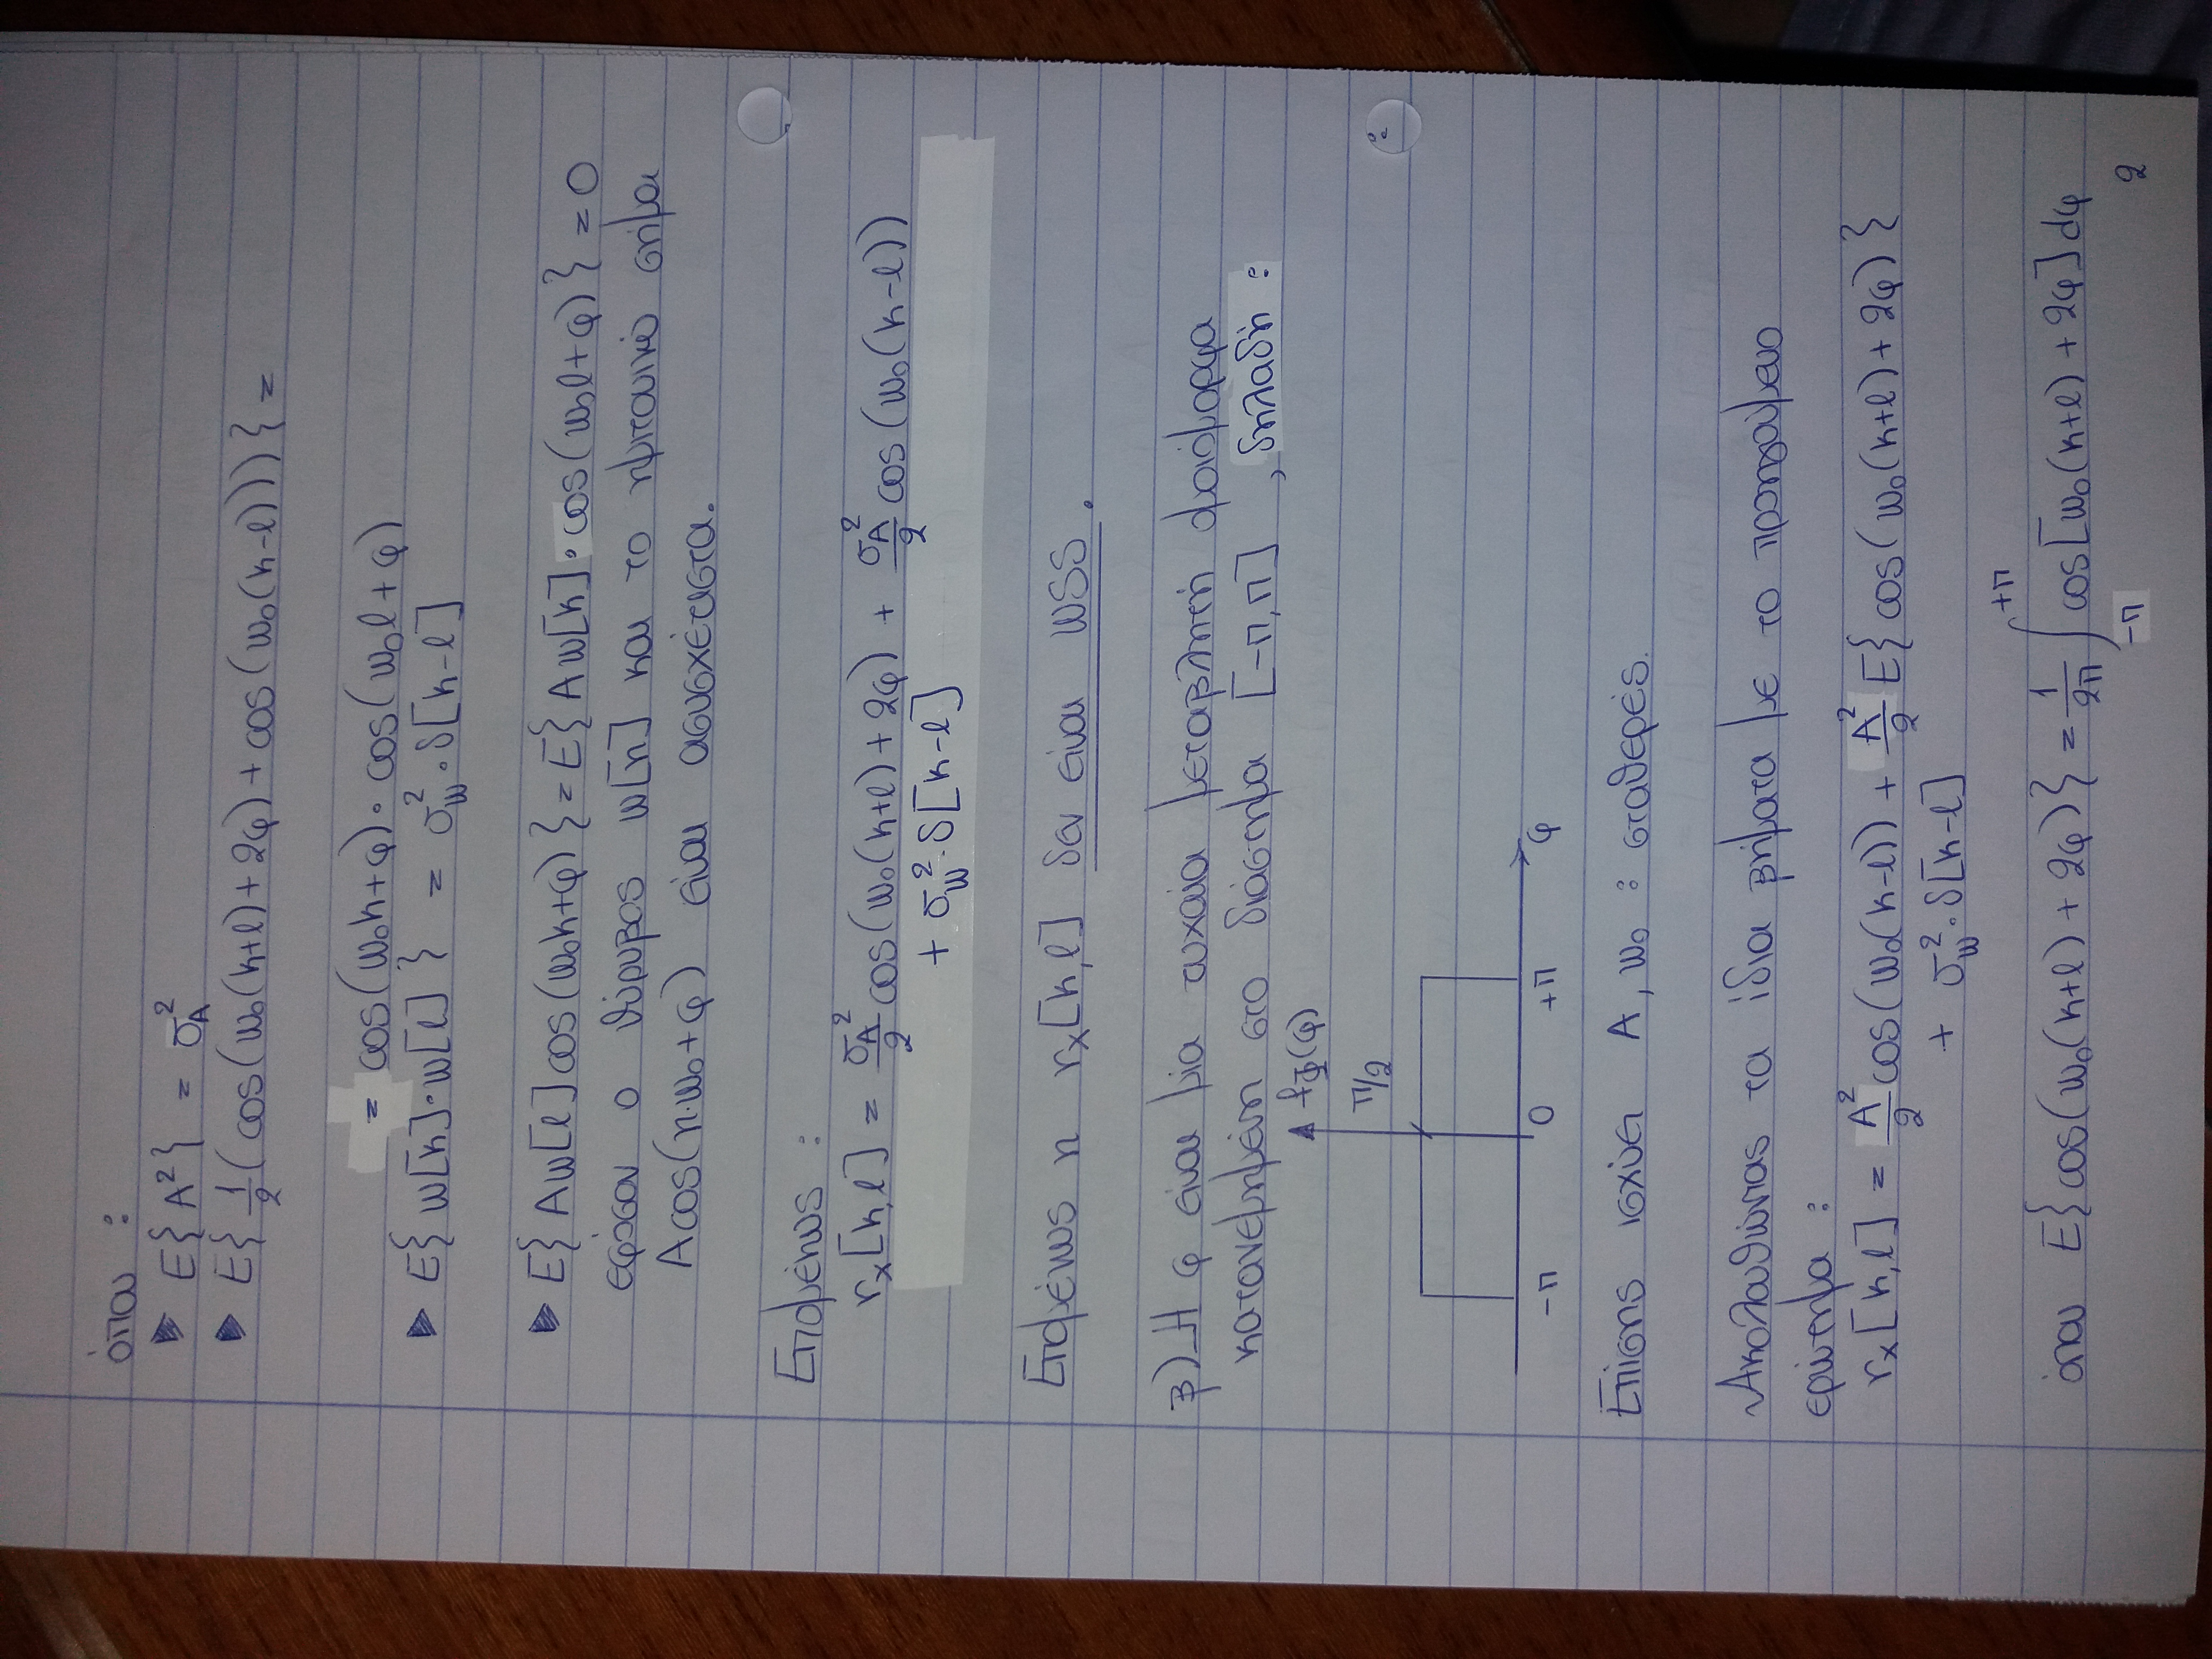 όπου :
▶ E{A²} = σ_A²
▶ E{ 1/2 (cos(ω₀(k+l)+2φ)+cos(ω₀(k-l)))} =
= cos(ω₀k+φ)·cos(ω₀l+φ)
▶ E{w[k]·w[l]} = σ_w²·δ[k-l]
▶ E{Aw[l]cos(ω₀k+φ)}=E{Aw[k]·cos(ω₀l+φ)} = 0
εφόσον ο θόρυβος w[n] και το ημιτονικό σήμα
Acos(n·ω₀+φ) είναι ασυσχέτιστα.
Επομένως :
r_x[k,l] = σ_A²/2 cos(ω₀(k+l)+2φ) + σ_A²/2 cos(ω₀(k-l))
+ σ_w²·δ[k-l]
Επομένως η r_x[k,l] δεν είναι WSS.
β) Η φ είναι μία τυχαία μεταβλητή ομοιόμορφα
κατανεμημένη στο διάστημα [-π,π] , δηλαδή :
f_Φ(φ)
π/2
-π 0 +π φ
Επίσης ισχύει A, ω₀ : σταθερές.
Ακολουθώντας τα ίδια βήματα με το προηγούμενο
ερώτημα :
r_x[k,l] = A²/2 cos(ω₀(k-l)) + A²/2 E{cos(ω₀(k+l)+2φ)}
+ σ_w²·δ[k-l]
όπου E{cos(ω₀(k+l)+2φ)} = 1/2π ∫_{-π}^{+π} cos[ω₀(k+l)+2φ]dφ
2